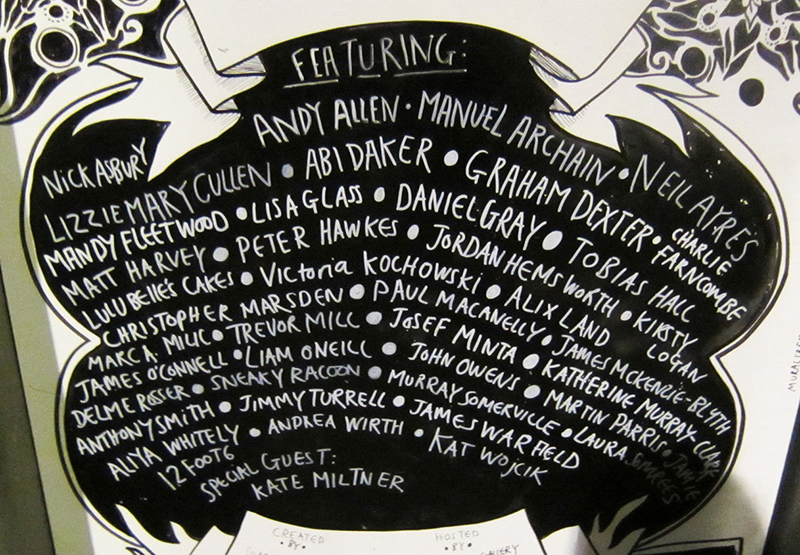 FEATURING:
ANDY ALLEN · MANUEL ARCHAIN · NEIL AYRES
NICK ASBURY
LIZZIE MARY CULLEN · ABI DAKER · GRAHAM DEXTER · CHARLIE FARNCOMBE
MANDY FLEETWOOD · LISA GLASS · DANIEL GRAY · TOBIAS HALL
MATT HARVEY · PETER HAWKES · JORDAN HEMSWORTH · KIRSTY LOGAN
LULUBELLE'S CAKES · VICTORIA KOCHOWSKI · ALIX LAND
CHRISTOPHER MARSDEN · PAUL MACANELLY · JAMES MCKENZIE-BLYTH
MARC A. MILIC · TREVOR MILL · JOSEF MINTA · KATHERINE MURRAY-CLARK
JAMES O'CONNELL · LIAM ONEILL · JOHN OWENS · MARTIN PARRIS · JAMIE
DELME ROSSER · SNEAKY RACCOON · MURRAY SOMERVILLE · LAURA
ANTHONY SMITH · JIMMY TURRELL · JAMES WARFIELD
ALIYA WHITELY · ANDREA WIRTH · KAT WOJCIK
12FOOT6
SPECIAL GUEST:
KATE MILTNER
CREATED
· BY ·
HOSTED
· BY ·